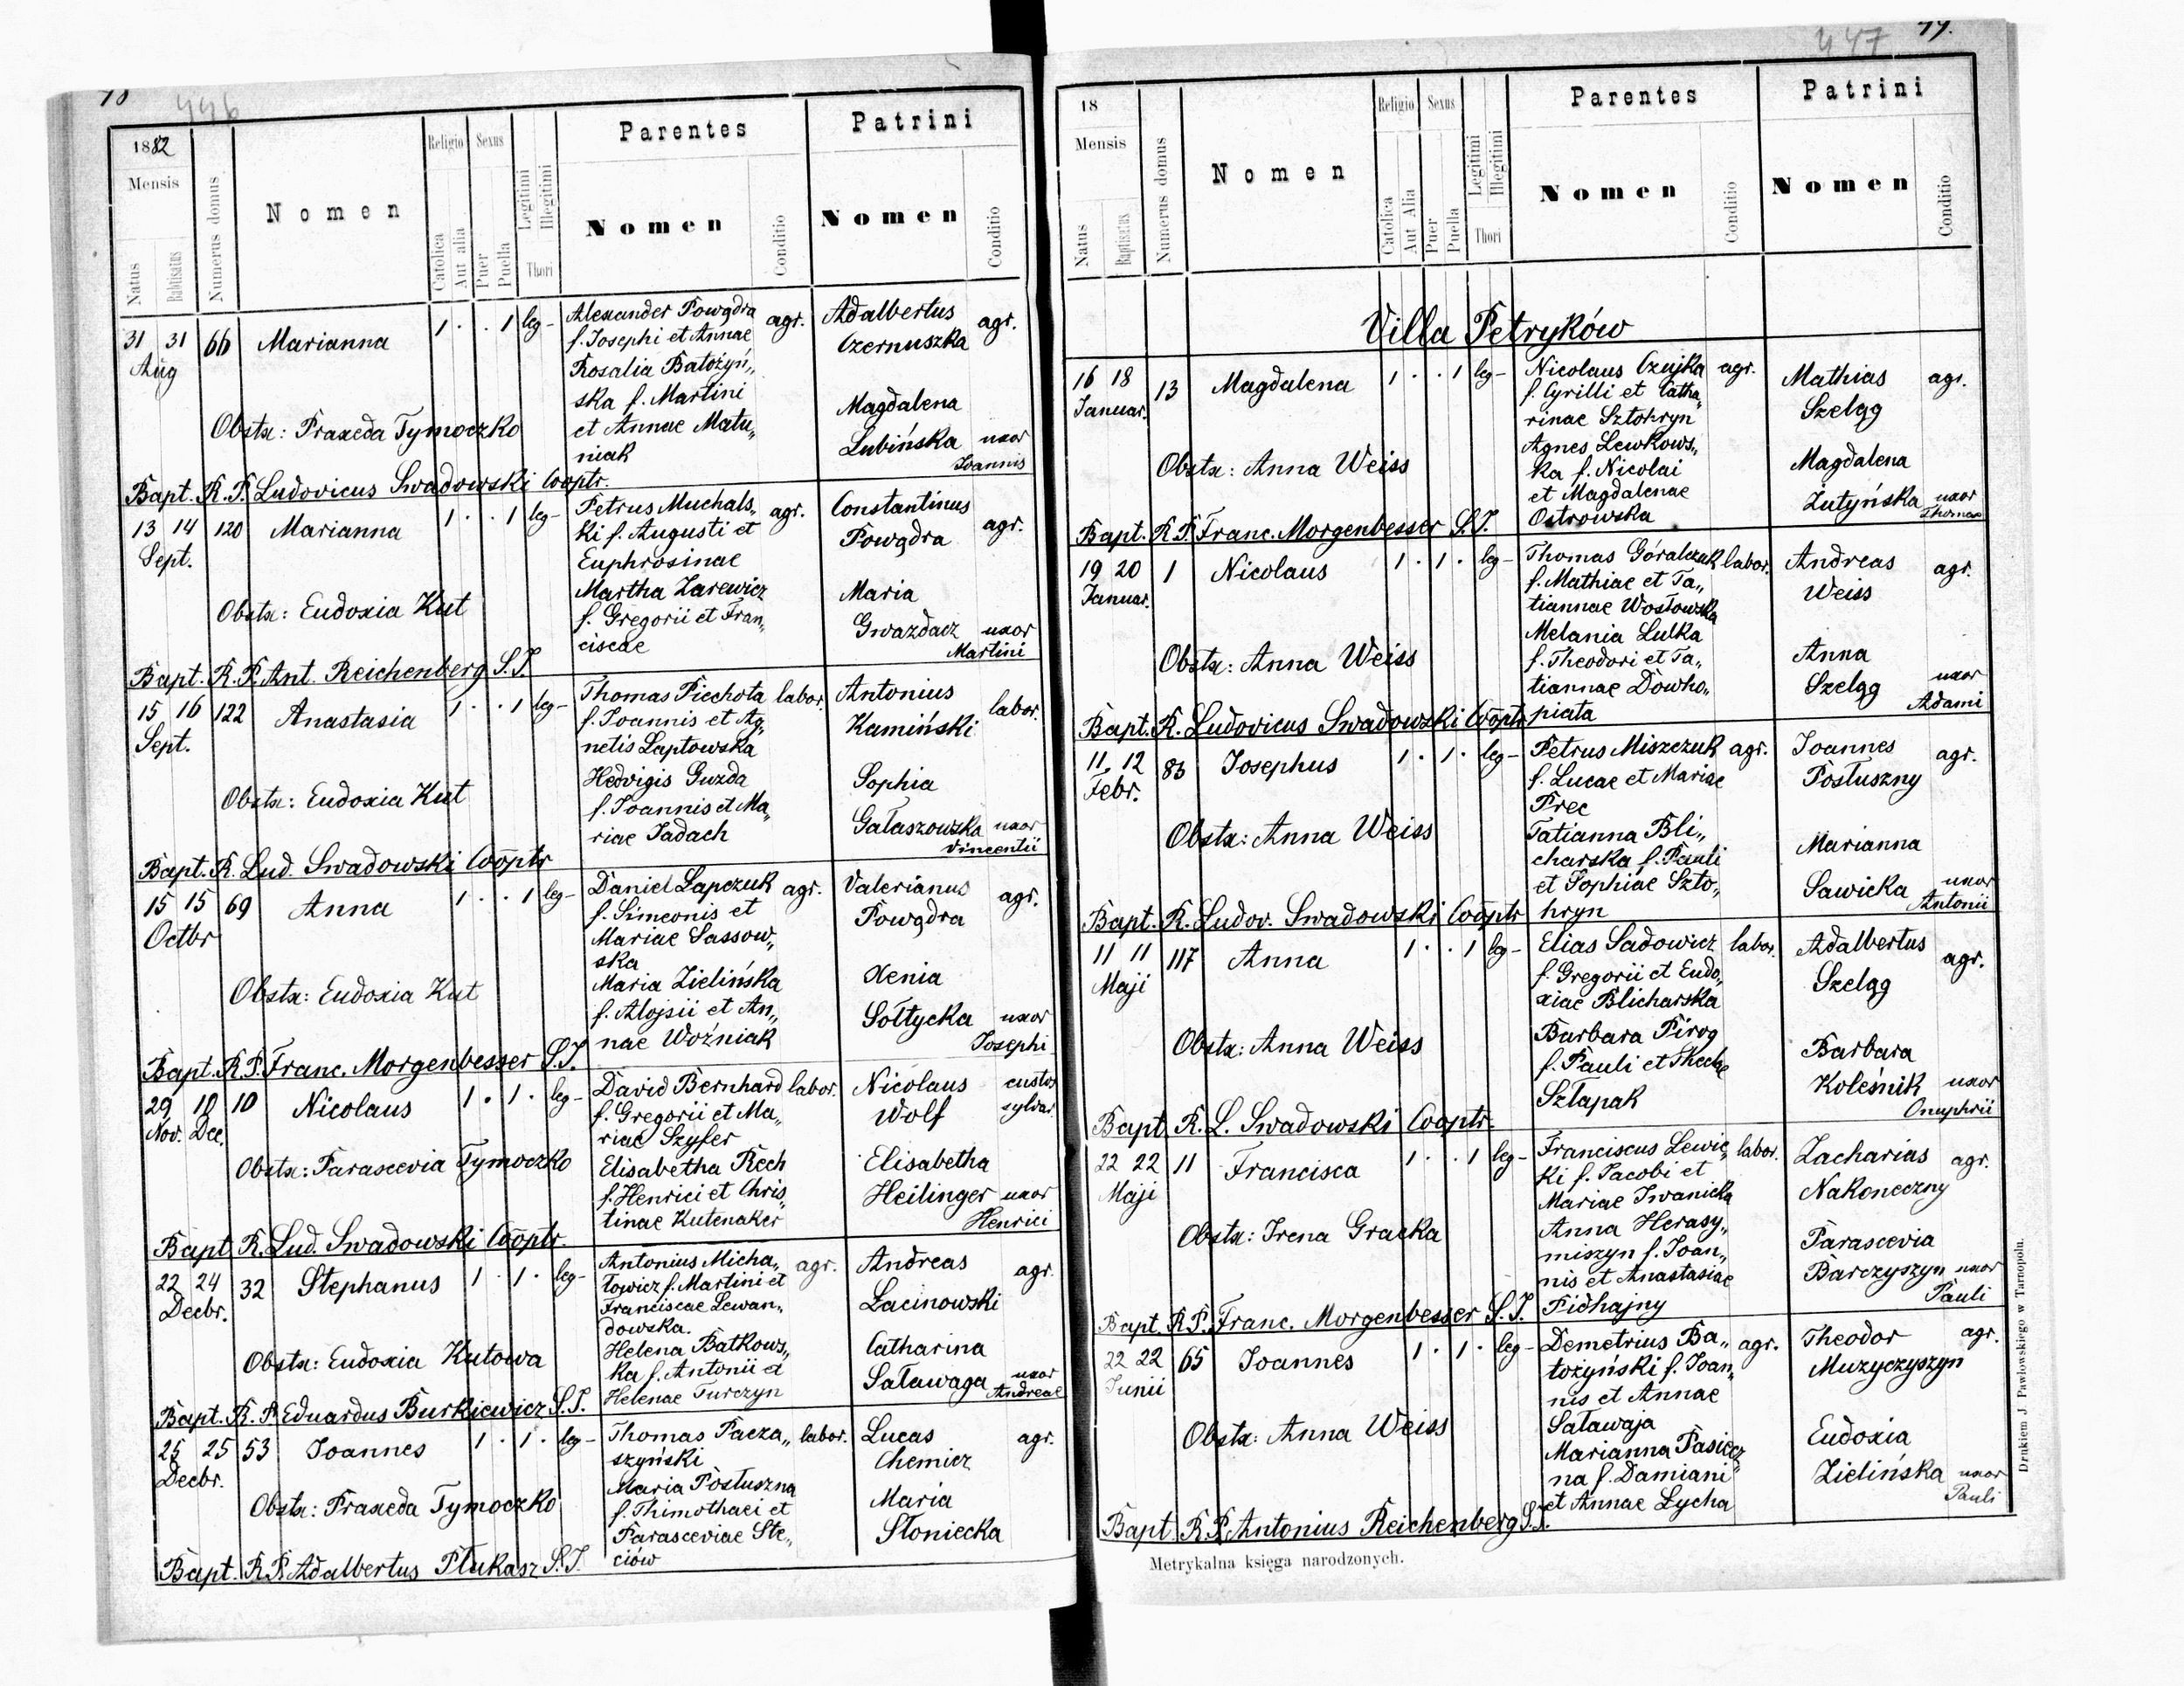 446
1882
Mensis
Natus
Babtisatus
Numerus domus
Nomen
Religio
Catolica
Aut alia
Sexus
Puer
Puella
Legitimi
Illegitimi
Thori
Parentes
Nomen
Conditio
Patrini
Nomen
Conditio
31 31 66 Marianna 1 . . 1 leg-
Aug
Alexander Powądra agr.
f. Josephi et Annae
Rosalia Batożyń„
ska f. Martini
et Annae Matu„
niak
Adalbertus agr.
Czernuszka
Magdalena
Lubińska uxor
Joannis
Obstx: Praxeda Tymoczko
Bapt. R. P. Ludovicus Swadowski Cooptr.
13 14 120 Marianna 1 . . 1 leg-
Sept.
Petrus Muchals„ agr.
ki f. Augusti et
Euphrosinae
Martha Zarewicz
f. Gregorii et Fran„
ciscae
Constantinus agr.
Powądra
Maria
Gwazdacz uxor
Martini
Obstx: Eudoxia Kut
Bapt. R. P. Ant. Reichenberg S.J.
15 16 122 Anastasia 1 . . 1 leg-
Sept.
Thomas Piechota labor.
f. Joannis et Ag„
netis Łaptowska
Hedvigis Guzda
f. Joannis et Ma„
riae Jadach
Antonius labor.
Kamiński
Sophia
Gałaszowska uxor
Vincentii
Obstx: Eudoxia Kut
Bapt. R. Lud. Swadowski Cooptr
15 15 69 Anna 1 . . 1 leg-
Octbr
Daniel Łapczuk agr.
f. Simeonis et
Mariae Sassow„
ska
Maria Zielińska
f. Alojsii et An„
nae Woźniak
Valerianus agr.
Powądra
Xenia
Sołtycka uxor
Josephi
Obstx: Eudoxia Kut
Bapt. R.P. Franc. Morgenbesser S.J.
29 10 10 Nicolaus 1 . 1 . leg-
Nov. Dec.
David Bernhard labor.
f. Gregorii et Ma„
riae Szyfer
Elisabetha Rech
f. Henrici et Chris„
tinae Kutenaker
Nicolaus custos
Wolf sylvar.
Elisabetha
Heilinger uxor
Henrici
Obstx: Parascevia Tymoczko
Bapt. R. Lud. Swadowski Cooptr.
22 24 32 Stephanus 1 . 1 . leg-
Decbr.
Antonius Micha„ agr.
łowicz f. Martini et
Franciscae Lewan„
dowska.
Helena Batkows„
ka f. Antonii et
Helenae Turczyn
Andreas agr.
Łacinowski
Catharina
Saławaga uxor
Andreae
Obstx: Eudoxia Kutowa
Bapt. R. P. Eduardus Burkiewicz S.J.
25 25 53 Joannes 1 . 1 . leg-
Decbr.
Thomas Pacza„ labor.
szyński
Maria Posłuszna
f. Thimothaei et
Parasceviae Ste„
ciów
Lucas agr.
Chemicz
Maria
Słoniecka
Obstx: Praxeda Tymoczko
Bapt. R.P. Adalbertus Płukasz S.J.
447
18
Mensis
Natus
Baptisatus
Numerus domus
Nomen
Religio
Catolica
Aut Alia
Sexus
Puer
Puella
Legitimi
Illegitimi
Thori
Parentes
Nomen
Conditio
Patrini
Nomen
Conditio
Villa Petryków
16 18 13 Magdalena 1 . . 1 leg-
Januar.
Nicolaus Czujka agr.
f. Cyrilli et Catha„
rinae Sztohryn
Agnes Lewkows„
ka f. Nicolai
et Magdalenae
Ostrowska
Mathias agr.
Szeląg
Magdalena
Żutyńska uxor
Thomae
Obstx: Anna Weiss
Bapt. R.P. Franc. Morgenbesser S.J.
19 20 1 Nicolaus 1 . 1 . leg-
Januar.
Thomas Góralczuk labor.
f. Mathiae et Ta„
tiannae Wosłowska
Melania Lulka
f. Theodori et Ta„
tiannae Dowho„
piata
Andreas agr.
Weiss
Anna
Szeląg uxor
Adami
Obstx: Anna Weiss
Bapt. R. Ludovicus Swadowski Cooptr
11. 12 83 Josephus 1 . 1 . leg-
Febr.
Petrus Miszczuk agr.
f. Lucae et Mariae
Prec
Tatianna Bli„
charska f. Pauli
et Sophiae Szto„
hryn
Joannes agr.
Posłuszny
Marianna
Sawicka uxor
Antonii
Obstx: Anna Weiss
Bapt. R. Ludov. Swadowski Cooptr
11 11 117 Anna 1 . . 1 leg-
Maji
Elias Sadowicz labor.
f. Gregorii et Eudo„
xiae Blicharska
Barbara Pirog
f. Pauli et Theclae
Szłapak
Adalbertus agr.
Szeląg
Barbara
Koleśnik uxor
Onuphrii
Obstx: Anna Weiss
Bapt. R. L. Swadowski Cooptr.
22 22 11 Francisca 1 . . 1 leg-
Maji
Franciscus Lewic„ labor.
ki f. Jacobi et
Mariae Iwanicka
Anna Herasy„
miszyn f. Joan„
nis et Anastasiae
Pidhajny
Zacharias agr.
Nakoneczny
Parascevia
Barczyszyn uxor
Pauli
Obstx: Irena Gracka
Bapt. R.P. Franc. Morgenbesser S.J.
22 22 65 Joannes 1 . 1 . leg-
Junii
Demetrius Ba„ agr.
tożyński f. Joan„
nis et Annae
Saławaja
Marianna Pasiecz
na f. Damiani
et Annae Łycha
Theodor agr.
Muzyczyszyn
Eudoxia
Zielińska uxor
Pauli
Obstx: Anna Weiss
Bapt. R.P. Antonius Reichenberg S.J.
Metrykalna księga narodzonych.
Drukiem J. Pawłowskiego w Tarnopolu.